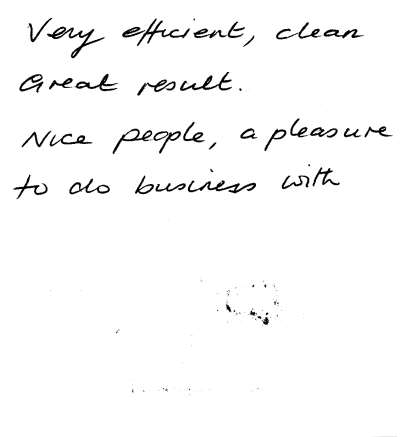 Very efficient, clean
Great result.
Nice people, a pleasure
to do business with